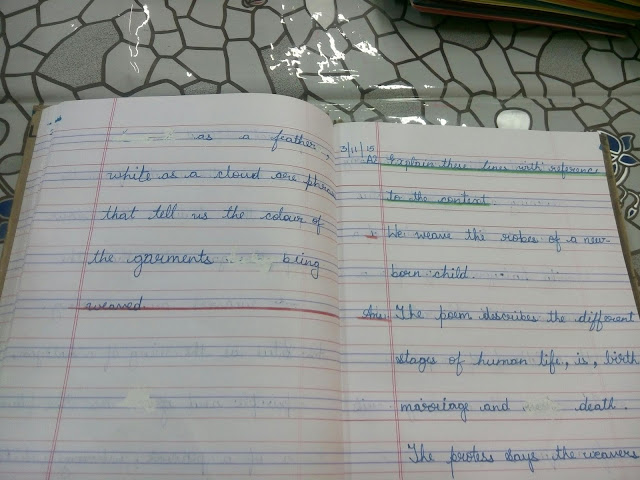 as a feather,
white as a cloud are phras
that tell us the colour of
the garments being
weaved
3/11/15
A2 Explain these lines with reference
to the context.
1. We weave the robes of a new-
born child.
Ans: The poem describes the different
stages of human life, is, birth
marriage and death.
The protess says the weavers